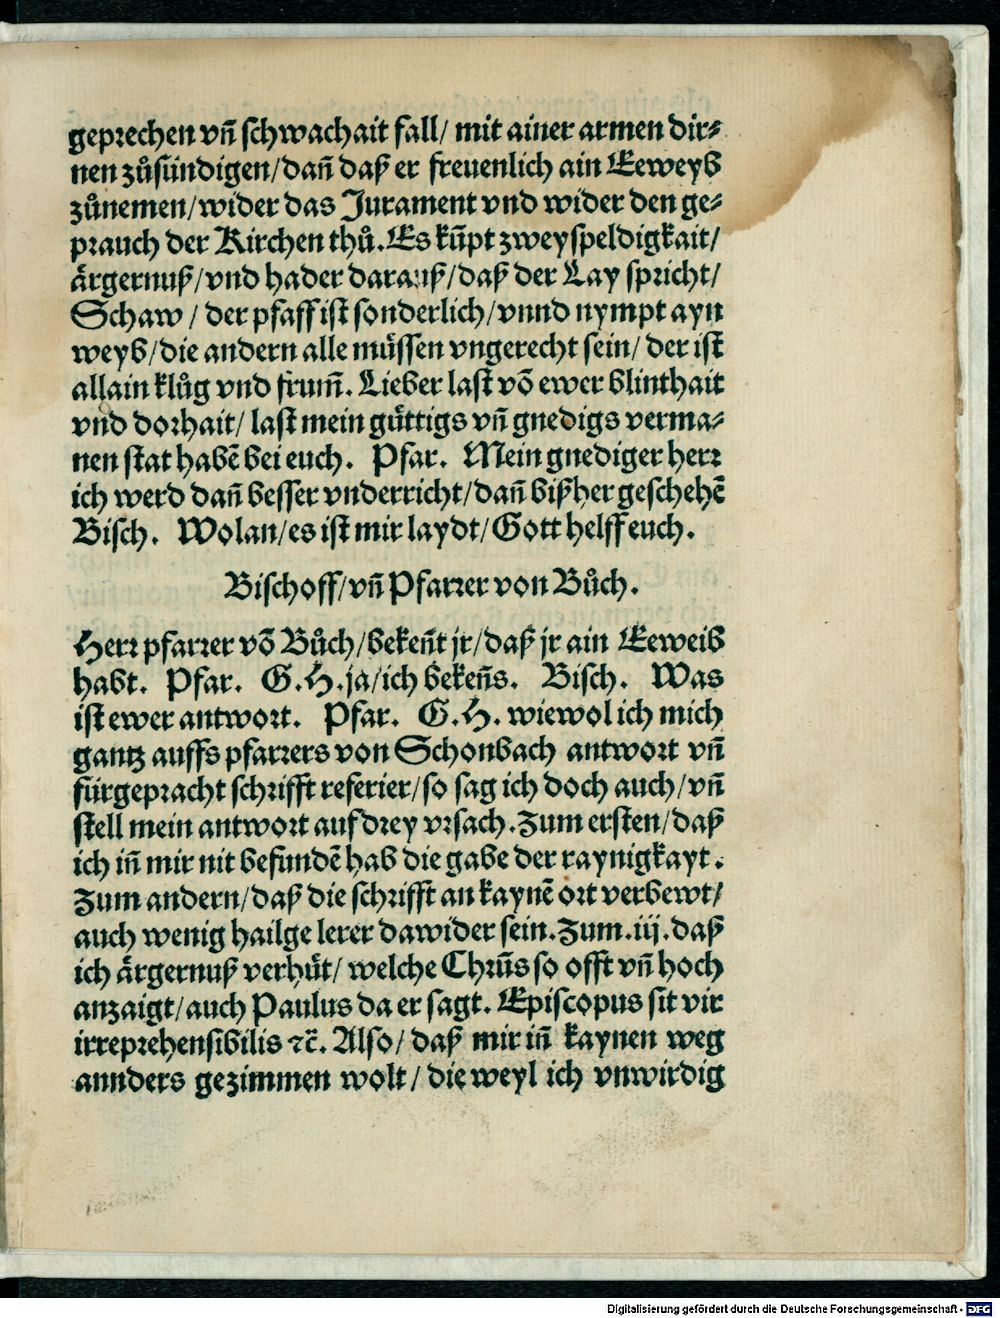 geprechen vñ schwachait fall/ mit ainer armen dir⸗
nen zůsündigen/dañ daß er freuenlich ain Eeweyb
zůnemen/wider das Jurament vnd wider den ge⸗
prauch der Kirchen thů. Es kũpt zweyspeldigkait/
ärgernuß/vnd hader darauß/daß der Lay spricht/
Schaw / der pfaff ist sonderlich/vnnd nympt ayn
weyb/die andern alle müssen vngerecht sein/ der ist
allain klůg vnd frum̃. Lieber last võ ewer blinthait
vnd dorhait/ last mein güttigs vñ gnedigs verma⸗
nen stat habẽ bei euch. Pfar. Mein gnediger herr
ich werd dañ besser vnderricht/dañ bißher geschehẽ
Bisch. Wolan/es ist mir laydt/Gott helff euch.
Bischoff/vñ Pfarrer von Bůch.
Herr pfarrer võ Bůch/bekeñt jr/daß jr ain Eeweib
habt. Pfar. G.H.ja/ich bekeñs. Bisch. Was
ist ewer antwort. Pfar. G.H. wiewol ich mich
gantz auffs pfarrers von Schonbach antwort vñ
fürgepracht schrifft referier/so sag ich doch auch/vñ
stell mein antwort auf drey vrsach. Zum ersten/daß
ich iñ mir nit befundẽ hab die gabe der raynigkayt.
Zum andern/daß die schrifft an kaynẽ ort verbewt/
auch wenig hailge lerer dawider sein. Zum .iij. daß
ich ärgernuß verhüt/ welche Chrũs so offt vñ hoch
anzaigt/auch Paulus da er sagt. Episcopus sit vir
irreprehensibilis ⁊c̃. Also/ daß mir iñ kaynen weg
annders gezimmen wolt/ die weyl ich vnwirdig
Digitalisierung gefördert durch die Deutsche Forschungsgemeinschaft - DFG